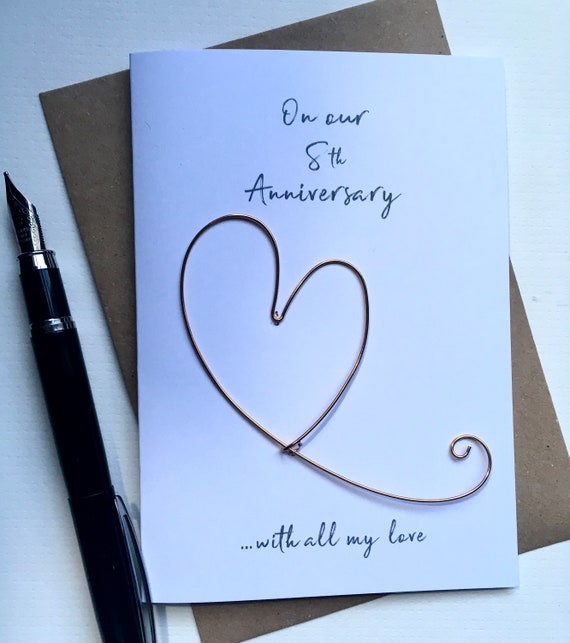 On our
8th
Anniversary
...with all my love